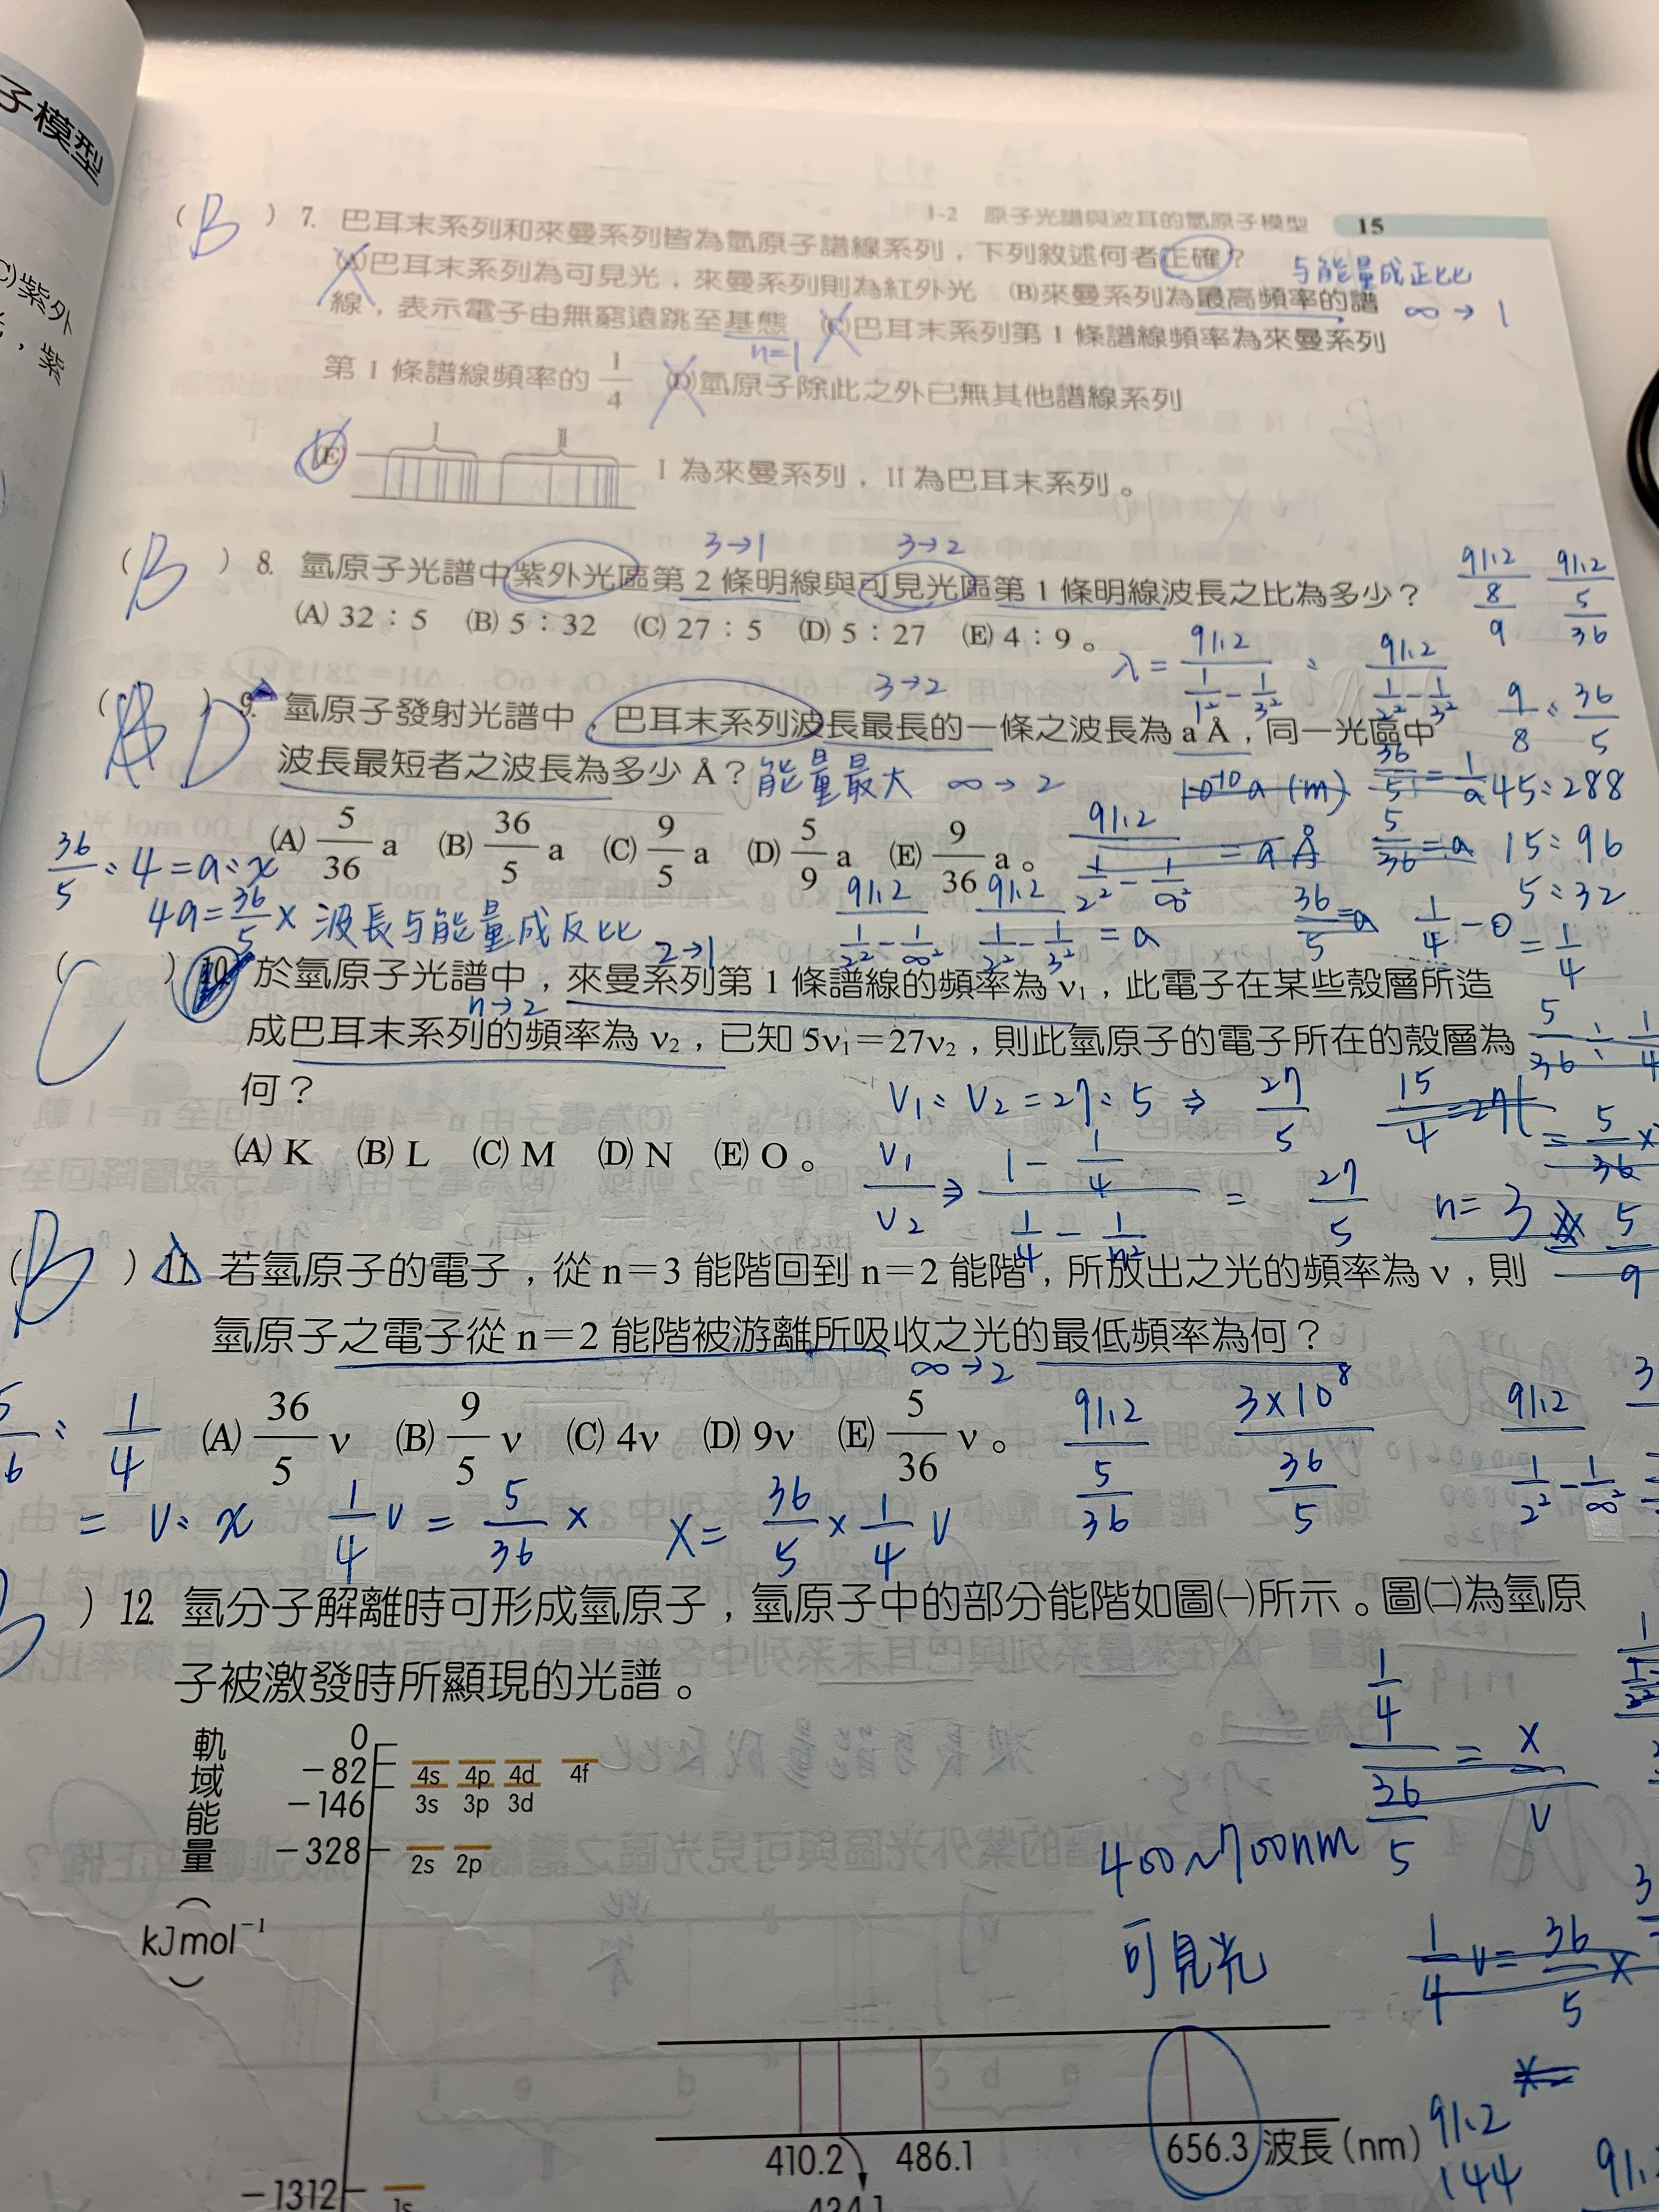 子模型
1-2 原子光譜與波耳的氫原子模型 15
C)紫外
，紫
( B ) 7. 巴耳末系列和來曼系列皆為氫原子譜線系列，下列敘述何者正確？
与能量成正比
(A)巴耳末系列為可見光，來曼系列則為紅外光 (B)來曼系列為最高頻率的譜
∞→1
線，表示電子由無窮遠跳至基態 (C)巴耳末系列第 1 條譜線頻率為來曼系列
n=1
第 1 條譜線頻率的 1/4 (D)氫原子除此之外已無其他譜線系列
(E) I II I 為來曼系列，II 為巴耳末系列。
3→1 3→2
( B ) 8. 氫原子光譜中紫外光區第 2 條明線與可見光區第 1 條明線波長之比為多少？
(A) 32：5 (B) 5：32 (C) 27：5 (D) 5：27 (E) 4：9。
91.2/(8/9) 91.2/(5/36)
λ= 91.2/(1/1²-1/3²) : 91.2/(1/2²-1/3²)
9/8 : 36/5
45:288
15:96
5:32
3→2
( D ) 9. 氫原子發射光譜中，巴耳末系列波長最長的一條之波長為 a Å，同一光區中
波長最短者之波長為多少 Å？能量最大 ∞→2
(A) 5/36 a (B) 36/5 a (C) 9/5 a (D) 5/9 a (E) 9/36 a。
10⁻¹⁰a (m)
36/5 = 1/a
5/36 = a
91.2/(1/2²-1/∞²) = a Å
36/5 : 4 = a : x
4a = 36/5 x 波長与能量成反比
91.2/(1/2²-1/∞²) 91.2/(1/2²-1/3²) = a
36/5 = a
1/4 - 0 = 1/4
2→1
( C ) 10. 於氫原子光譜中，來曼系列第 1 條譜線的頻率為 ν₁，此電子在某些殼層所造
n→2
成巴耳末系列的頻率為 ν₂，已知 5ν₁＝27ν₂，則此氫原子的電子所在的殼層為
何？
5/36 : 1/4
V₁:V₂=27:5 ⇒ 27/5
15/4 = 27
(A) K (B) L (C) M (D) N (E) O。
V₁/V₂ ⇒ (1-1/4)/(1/4-1/n²) = 27/5
n=3
( B ) 11. 若氫原子的電子，從 n＝3 能階回到 n＝2 能階，所放出之光的頻率為 ν，則
氫原子之電子從 n＝2 能階被游離所吸收之光的最低頻率為何？
∞→2
(A) 36/5 ν (B) 9/5 ν (C) 4ν (D) 9ν (E) 5/36 ν。
91.2/(5/36) 3×10⁸/(36/5) 91.2/(1/2²-1/∞²)
: 1/4
= V:x 1/4 V = 5/36 x X= 36/5 × 1/4 V
) 12. 氫分子解離時可形成氫原子，氫原子中的部分能階如圖㈠所示。圖㈡為氫原
子被激發時所顯現的光譜。
(1/4)/(36/5) = X/V
軌域能量（kJmol⁻¹）
0
−82 4s 4p 4d 4f
−146 3s 3p 3d
−328 2s 2p
400~700nm
可見光
1/4 V = 36/5 X
410.2 486.1 656.3 波長(nm)
434.1
91.2
144
−1312 1s